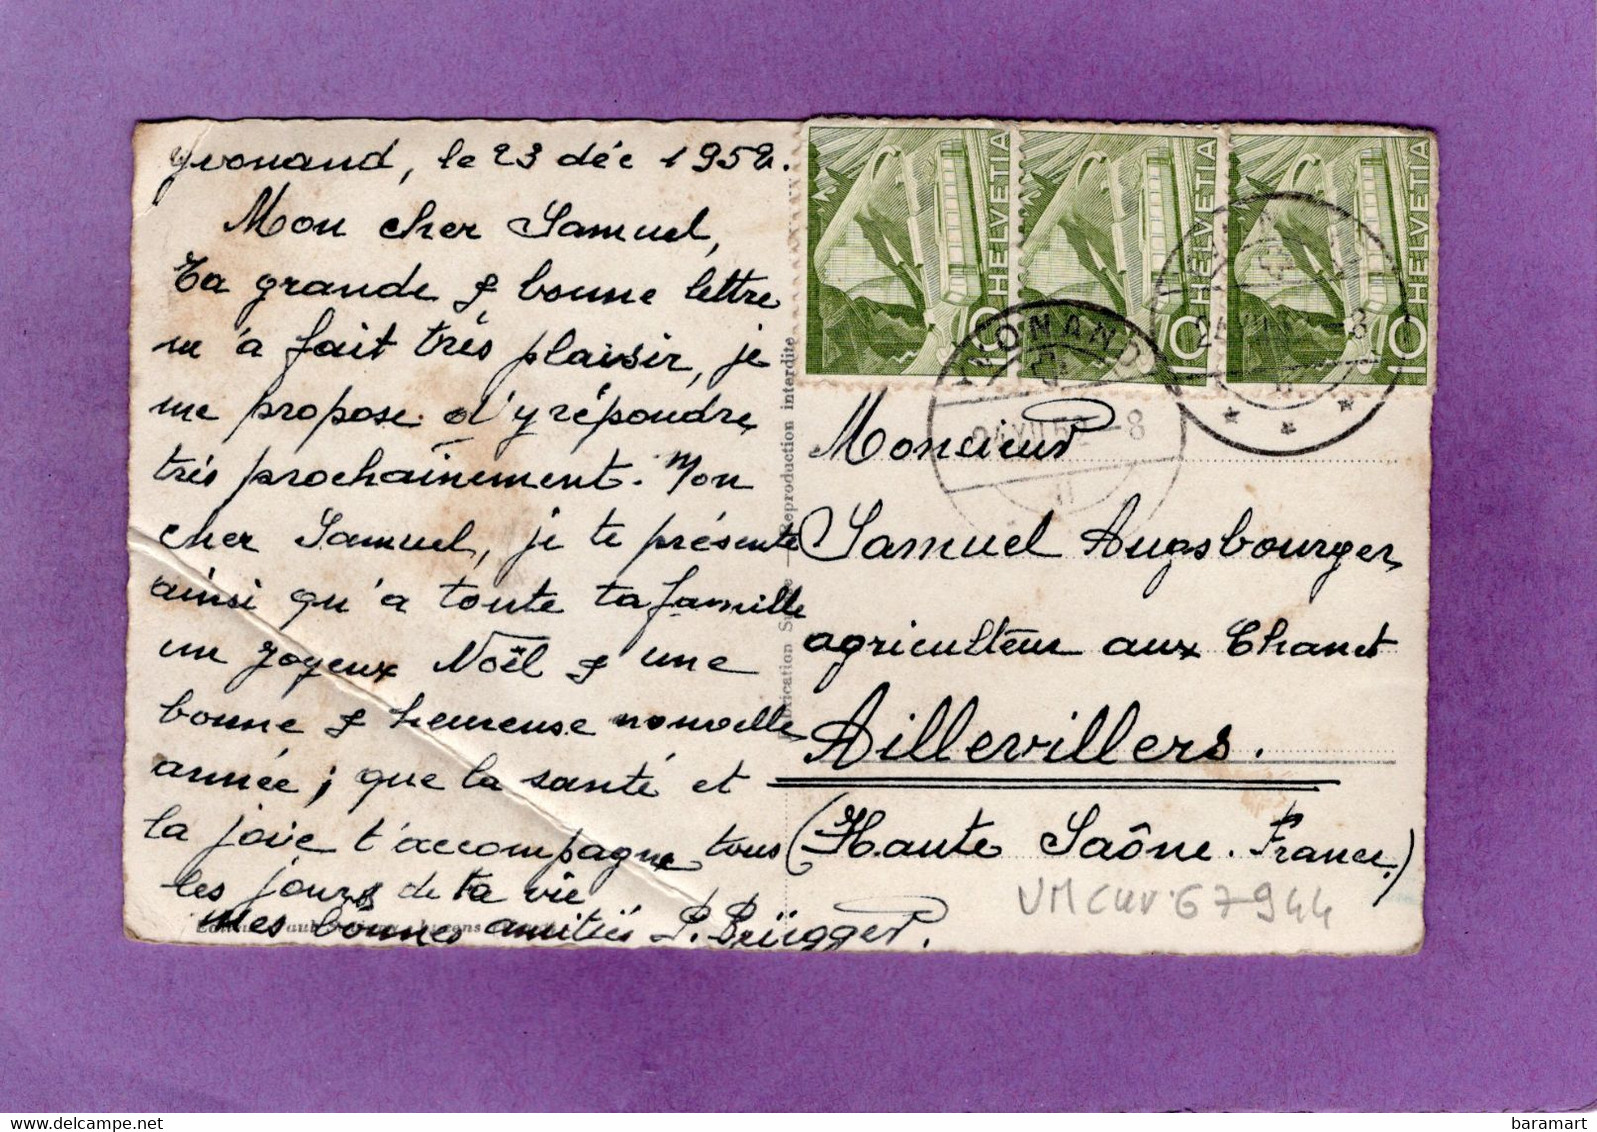 Yvonand, le 23 déc 1952.
Mon cher Samuel,
Ta grande & bonne lettre
m'a fait très plaisir, je
me propose d'y répondre
très prochainement. Mon
cher Samuel, je te présente
ainsi qu'à toute ta famille
un joyeux Noël & une
bonne & heureuse nouvelle
année; que la santé et
la joie t'accompagne tous
les jours de ta vie
Mes bonnes amitiés P. Brügger.
Fabrication Suisse - Reproduction interdite
HELVETIA
10
HELVETIA
10
HELVETIA
10
YVONAND
24.XII.52-8
-8
Monsieur
Samuel Augsbourger,
agriculteur aux Chanet
Aillevillers.
(Haute Saône. France.)
67944
baramart